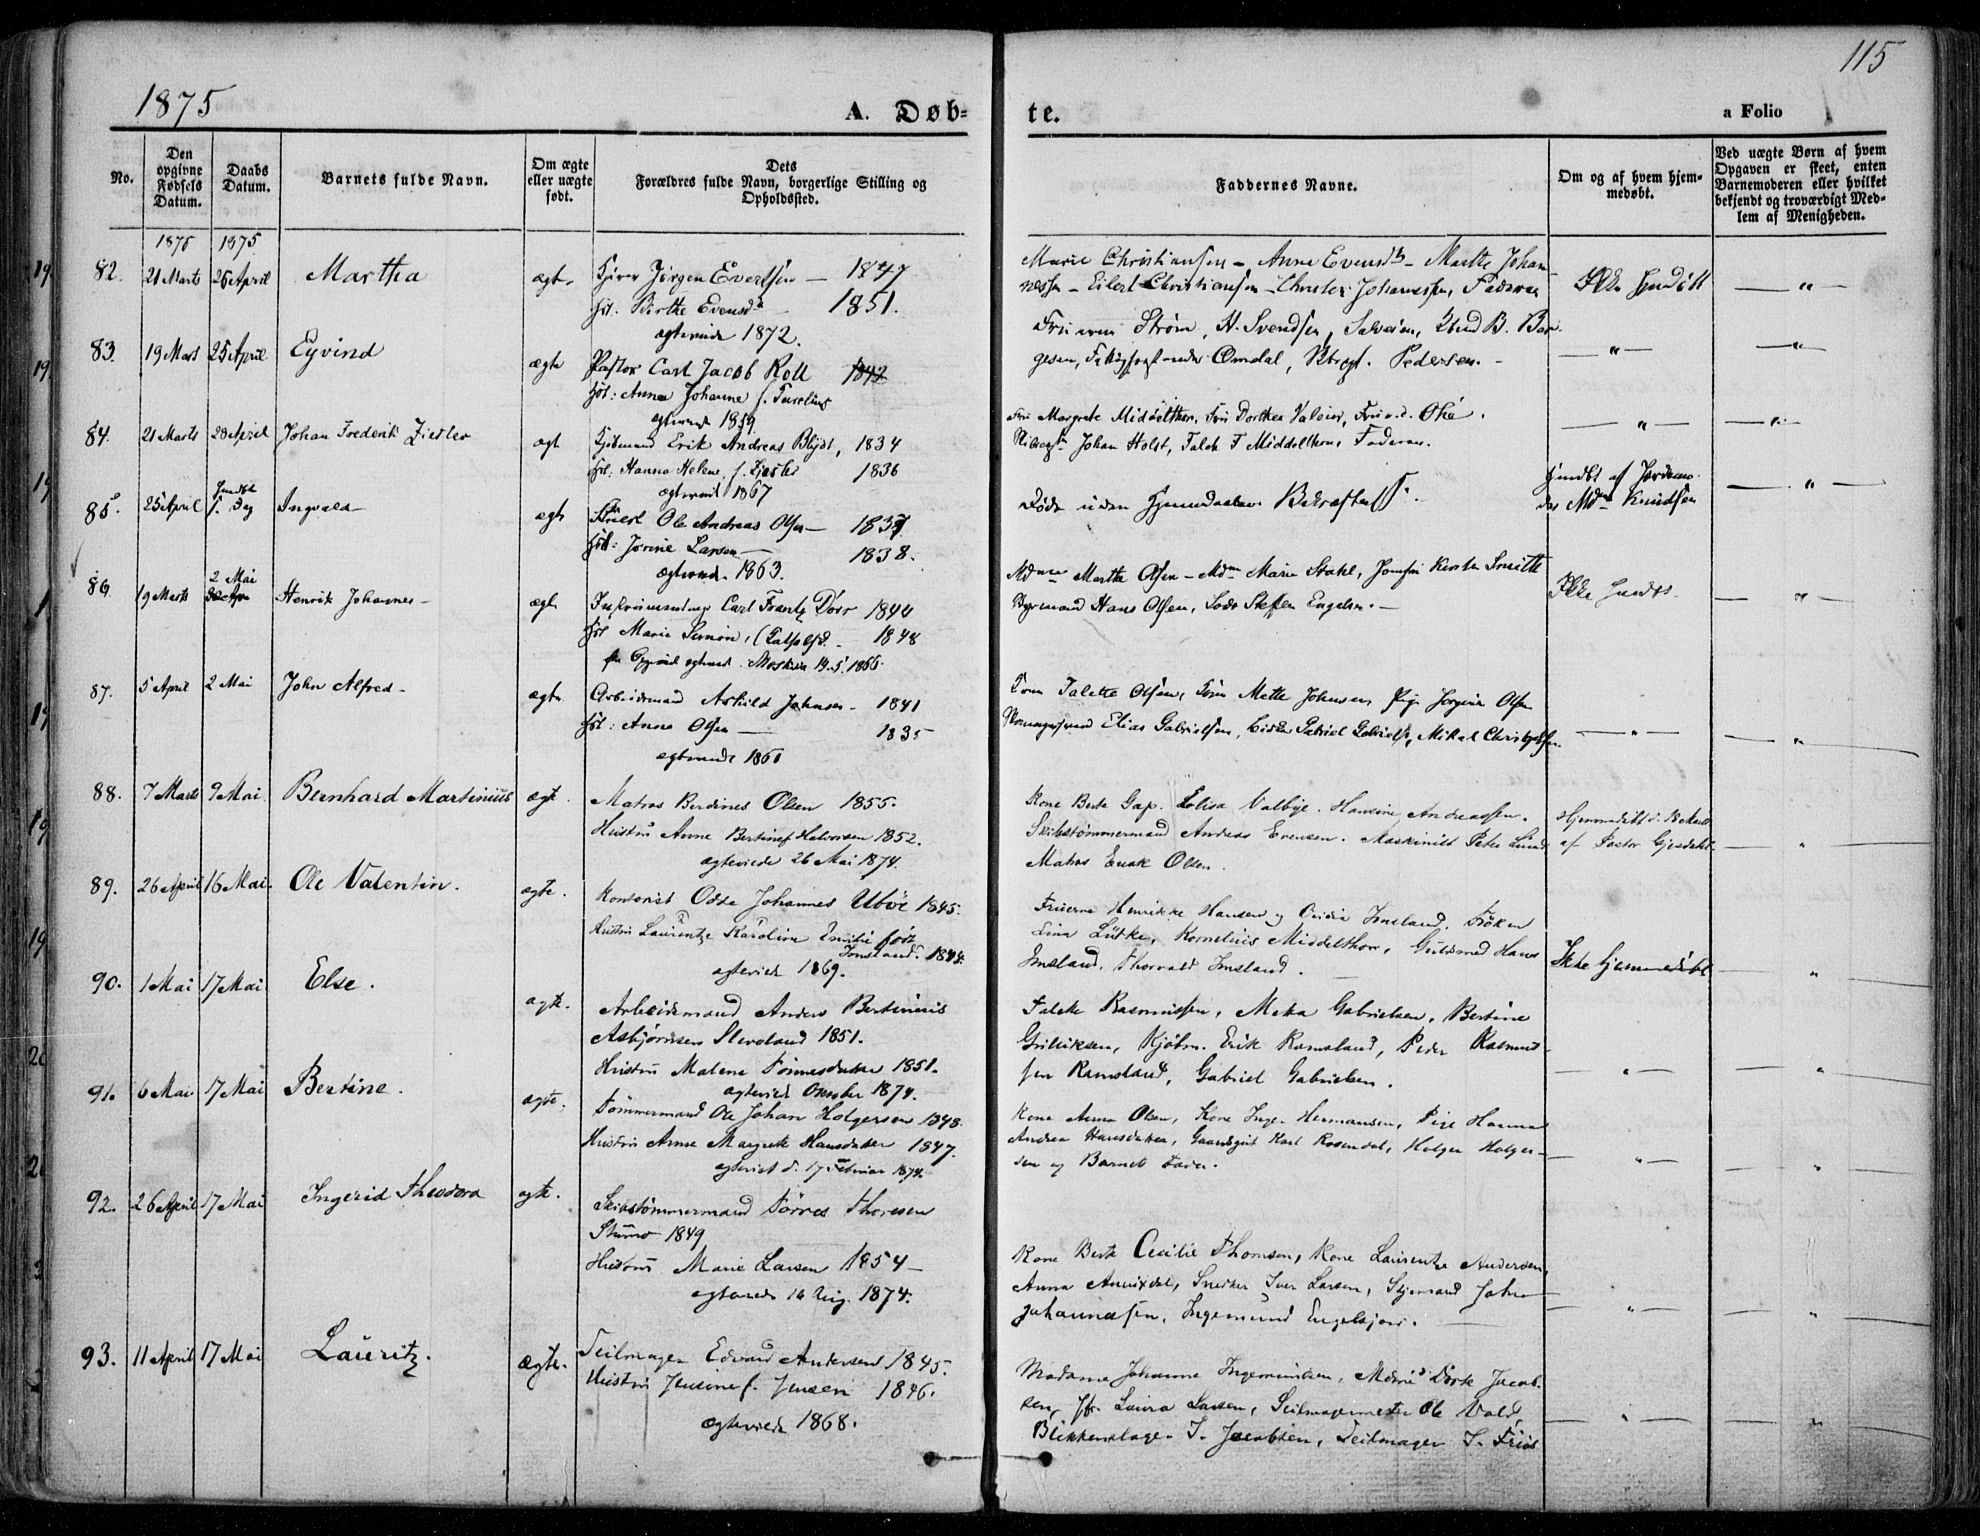 115
1875
A. Døb-
te.
a Folio
No.
Den opgivne Fødsels Datum.
Daabs Datum.
Barnets fulde Navn.
Om ægte eller uægte født.
Dets Forældres fulde Navn, borgerlige Stilling og Opholdssted.
Faddernes Navne.
Om og af hvem hjemmedøbt.
Ved uægte Børn af hvem Opgaven er skeet, enten Barnemoderen eller hvilket bekjendt og troværdigt Medlem af Menigheden.
1875 1875
82. 21 Marts 25 April Martha ægte Jørgen Evertsen — 1847
Hst. Birthe Evensd. — 1851.
ægteviede 1872.
Marie Christiansen — Anne Evensdt — Marthe Johan-
nessen — Eilert Christiansen — Christen Johannessen, Faderen
Ikke hjmdøbt — " —
83. 19 Marts 25 April Eyvind ægte Pastor Carl Jacob Roll 1842
Hst: Anna Johanne f.
ægteviede 1859
Strøm, H. Svendsen, B. Bør-
gesen, Omdal, Pedersen. —
— " — — " —
84. 21 Marts 28 April Johan Frederik Ziesler ægt Kjøbmand Erik Andreas Blydt, 1834
Hst: Hanna Helene f. Ziesler 1836
ægteviede 1867
Fru Margrete Middelthon, Fru Dorthea Valeur, Fru
Johan Holst, Falck F Middelthon, Faderen.
— " — — " —
85. 25 April s. Dag Ingvald — ægte Ole Andreas Olsen — 1837
Hst: Jorine Larsen — 1838.
ægteviede 1863.
Døde uden
hjmdbt af Jordemo-
der Mdm Knudsen — " —
86. 19 Marts 2 Mai Henrik Johannes — ægte Carl Frantz Dørr 1844
Hst Marie 1848
Marthe Olsen — Mdm Marie Stahl, Kirsten Smith
Styrmand Hans Olsen, Lods Steffen Engelsen. —
Ikke hjmdbt. — " —
87. 5 April 2 Mai John Alfred — ægte Arbeidsmand Askild Johnsen — 1841
Hst: Anne Olsen — 1835
ægteviede 186
Talette Olsen, Mette Johnsen Pige Jorgine Olsen
Elias Gabrielsen, Gabriel Gabriels, Mikal Christophersen.
— " — — " —
88. 7 Marts 9 Mai Bernhard Martinius ægte. Matros Berdines Olsen 1855.
Hustru Anne Bertine Halvorsen 1852.
ægteviede 26 Mai 1874.
Kone Berte Gap. Elisa Valbye. Hansine Andreassen.
Skibstømmermand Andreas Evensen. Maskinist Peter Lund
Matros Enok Olsen.
Hjemmedøbt d. 18 Marts
af Pastor Gjesdahl — " —
89. 26 April 16 Mai. Ole Valentin. ægte. Kontorist Odde Johannes Ubøe 1845.
Hustru Laurentze Karoline Emilie født
Imsland. 1844.
ægteviede 1869.
Fruerne Henrikke Hansen og Imsland. Frøken
Lina Lütke, Kornelius Middelthon, Guldsmed Hans
Imsland, Thorvald Imsland.
Ikke hjemmedøbt — " —
90. 1 Mai 17 Mai Else. ægte. Arbeidsmand Anders Bertinius
Asbjørnsen Sleveland 1851.
Hustru Malene Tønnesdatter 1851.
ægteviede Oktober 1874.
Falcke Rasmussen, Meta Gabrielsen, Bertine
Kjøbm. Erik Ramsland, Peder Rasmus-
sen Ramsland, Gabriel Gabrielsen.
— " — — " —
91. 6 Mai 17 Mai Bertine. ægte. Tømmermand Ole Johan Holgersen 1848.
Hustru Anne Margrete Hansdatter 1847.
ægteviet d. 17 Februar 1874.
Kone Anna Olsen, Kone Inge Hermansen, Pige Hanna
Andrea Hansdatter, Karl Rosendal, Holger Holger-
sen og Barnets Fader.
— " — — " —
92. 26 April 17 Mai Ingerid Theodora ægte. Skibstømmermand Tørres Thoresen
1849
Hustru Marie Larsen 1854 —
ægteviede 16 Aug. 1874.
Kone Berte Cecilie Thomsen, Kone Laurentze Andersen,
Anna Snedker Iver Larsen, Styrmand John
Johannessen, Ingemund
— " — — " —
93. 11 April 17 Mai Lauritz. ægte. Seilmager Edvard Andersen 1845.
Hustru Jensine f. Jensen 1846.
ægteviede 1868.
Madame Johanne Ingemundsen, Dorte Jacob-
sen, Jfr. Laura Larsen, Seilmagermester Ole Vold,
Blikkenslager T. Jacobsen, Seilmager S. Friis
— " — — " —